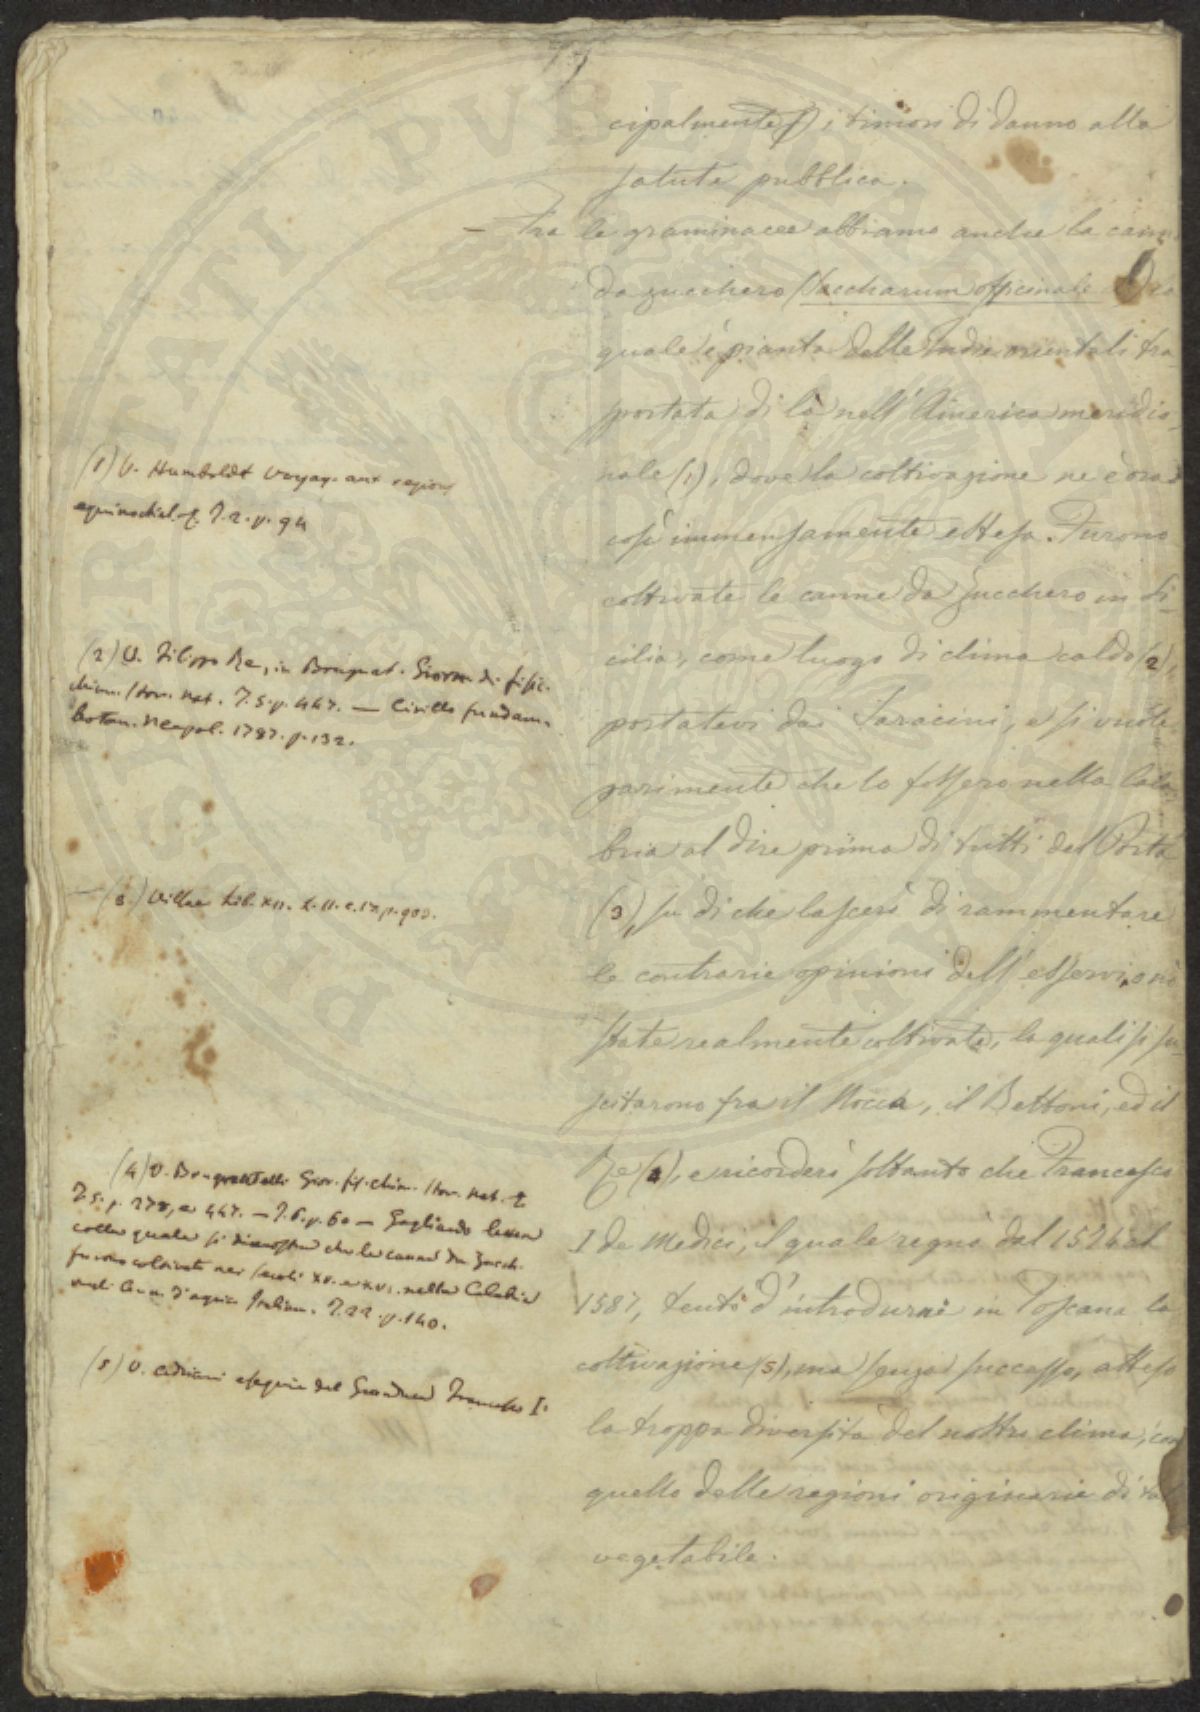 cipalmente i timori di danno alla
salute pubblica.
— Fra le graminacee abbiamo anche la canna
da zucchero (Saccharum officinale) la
quale è pianta delle Indie orientali tra-
portata di là nell'America meridio-
nale (1), dove la coltivazione ne è ora
così immensamente estesa. Furono
coltivate le canne da zucchero in Si-
cilia, come luogo di clima caldo (2),
portatevi dai Saracini, e si vuole
parimente che lo fossero nella Cala-
bria al dire prima di tutti del Porta
(3), su di che lascerò di rammentare
le contrarie opinioni dell'esservi, o nò
state realmente coltivate, le quali si su-
scitarono fra il Nocca, il Bettoni, ed il
Re (4), e ricorderò soltanto che Francesco
I de Medici, il quale regnò dal 1574 al
1587, tentò d'introdurne in Toscana la
coltivazione (5), ma senza successo, atteso
la troppa diversità del nostro clima, con
quello delle regioni originarie di tal
vegetabile.
(1) V. Humboldt voyag. aux region
equinoctial. T. 2. p. 94
(2) V. Filippo Re, in Brugnat. Giorn. di fisic.
chim. stor. nat. T. 5. p. 447. — Cirillo fundam.
botan. Neapol. 1787. p. 132.
— (3) Villae Lib. XII. c. IX p. 900.
(4) V. Brugnatelli Gior. fis. chim. stor. nat.
T. 5. p. 278, e 447. — T. 6. p. 60 — Gagliardo lettera
colla quale si dimostra che le canne da zucch.
furono coltivate nei secoli XV. e XVI. nella Calabria
T. 22. p. 140.
(5) V. Adriani esequie del Granduca Francesco I.
PROSPERITATI PVBLICAE